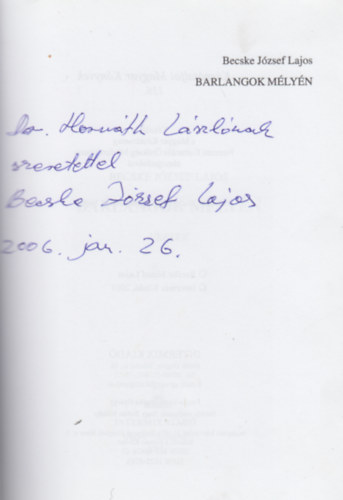 Becske József Lajos
BARLANGOK MÉLYÉN
Dr. Horváth Lászlónak
szeretettel
Becske József Lajos
2006. jan. 26.